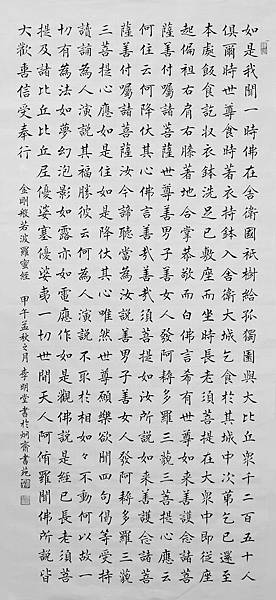 如是我聞一時佛在舍衛國祇樹給孤獨園與大比丘眾千二百五十人
俱爾時世尊食時著衣持鉢入舍衛大城乞食於其城中次第乞已還至
本處飯食訖收衣鉢洗足已敷座而坐時長老須菩提在大眾中即從座
起偏袒右肩右膝著地合掌恭敬而白佛言希有世尊如來善護念諸菩
薩善付囑諸菩薩世尊善男子善女人發阿耨多羅三藐三菩提心應云
何住云何降伏其心佛言善哉善哉須菩提如汝所說如來善護念諸菩
薩善付囑諸菩薩汝今諦聽當為汝說善男子善女人發阿耨多羅三藐
三菩提心應如是住如是降伏其心唯然世尊願樂欲聞四句偈等受持
讀誦為人演說其福勝彼云何為人演說不取於相如々不動何以故一
切有為法如夢幻泡影如露亦如電應作如是觀佛說是經已長老須菩
提及諸比丘比丘尼優婆塞優婆夷一切世間天人阿脩羅聞佛所說皆
大歡喜信受奉行
金剛般若波羅蜜經 甲午孟秋之月李明堂書於炯齋書苑